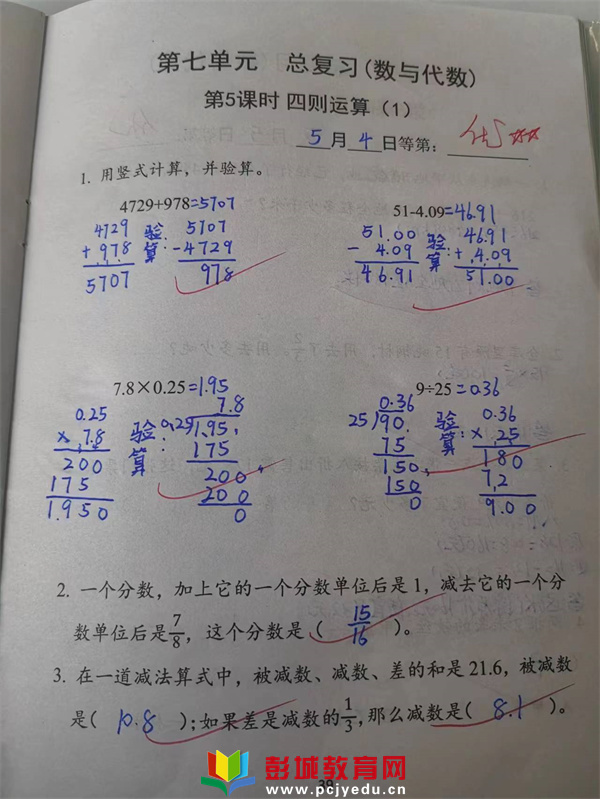 第七单元 总复习(数与代数)
第5课时 四则运算（1）
5月4日等第：优
1. 用竖式计算，并验算。
4729+978=5707
51-4.09=46.91
4729
+978
5707
验算：
5707
-4729
978
51.00
- 4.09
46.91
验算：
46.91
+ 4.09
51.00
7.8×0.25=1.95
9÷25=0.36
0.25
× 7.8
200
175
1.950
验算：
7.8
0.25 1.95
175
200
200
0
0.36
25 90
75
150
150
0
验算：
0.36
× 25
180
7.2
9.00
2. 一个分数，加上它的一个分数单位后是1，减去它的一个分
数单位后是7/8，这个分数是（ 15/16 ）。
3. 在一道减法算式中，被减数、减数、差的和是21.6，被减数
是( 10.8 );如果差是减数的1/3,那么减数是( 8.1 )。
39
彭城教育网
www.pcjyedu.cn